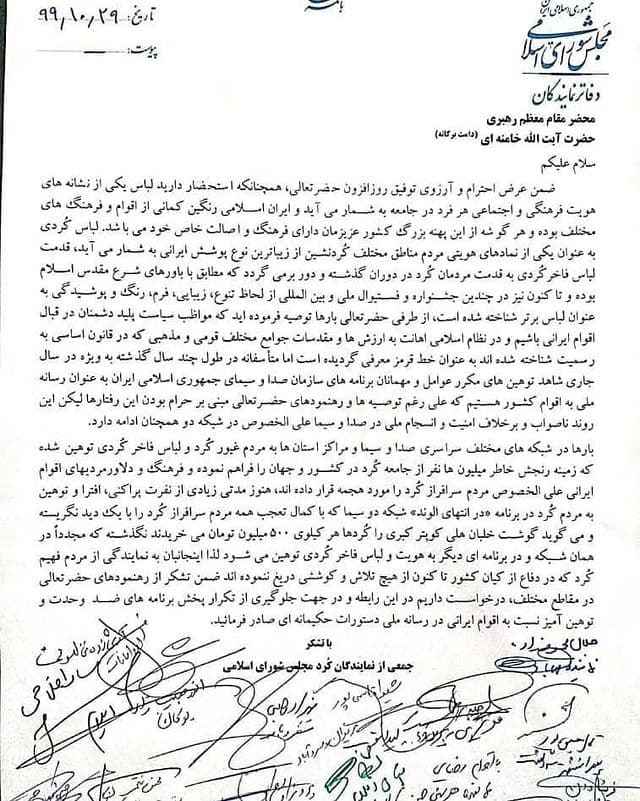 جمهوری اسلامی ایران
مجلس شورای اسلامی
دفاتر نمایندگان
تاریخ: ۹۹،۱۰،۲۹
پیوست:
محضر مقام معظم رهبری
حضرت آیت الله خامنه ای (دامت برکاته)
سلام علیکم
ضمن عرض احترام و آرزوی توفیق روزافزون حضرتعالی، همچنانکه استحضار دارید لباس یکی از نشانه های
هویت فرهنگی و اجتماعی هر فرد در جامعه به شمار می آید و ایران اسلامی رنگین کمانی از اقوام و فرهنگ های
مختلف بوده و هر گوشه از این پهنه بزرگ کشور عزیزمان دارای فرهنگ و اصالت خاص خود می با شد. لباس کُردی
به عنوان یکی از نمادهای هویتی مردم مناطق مختلف کُردنشین از زیباترین نوع پوشش ایرانی به شمار می آید، قدمت
لباس فاخر کُردی به قدمت مردمان کُرد در دوران گذشته و دور برمی گردد که مطابق با باورهای شرع مقدس اسلام
بوده و تا کنون نیز در چندین جشنواره و فستیوال ملی و بین المللی از لحاظ تنوع، زیبایی، فرم، رنگ و پوشیدگی به
عنوان لباس برتر شناخته شده است، از طرفی حضرتعالی بارها توصیه فرموده اید که مواظب سیاست پلید دشمنان در قبال
اقوام ایرانی باشیم و در نظام اسلامی اهانت به ارزش ها و مقدسات جوامع مختلف قومی و مذهبی که در قانون اساسی به
رسمیت شناخته شده اند به عنوان خط قرمز معرفی گردیده است اما متأسفانه در طول چند سال گذشته به ویژه در سال
جاری شاهد توهین های مکرر عوامل و مهمانان برنامه های سازمان صدا و سیمای جمهوری اسلامی ایران به عنوان رسانه
ملی به اقوام کشور هستیم که علی رغم توصیه ها و رهنمودهای حضرتعالی مبنی بر حرام بودن این رفتارها لیکن این
روند ناصواب و برخلاف امنیت و انسجام ملی در صدا و سیما علی الخصوص در شبکه دو همچنان ادامه دارد.
بارها در شبکه های مختلف سراسری صدا و سیما و مراکز استان ها به مردم غیور کُرد و لباس فاخر کُردی توهین شده
که زمینه رنجش خاطر میلیون ها نفر از جامعه کُرد در کشور و جهان را فراهم نموده و فرهنگ و دلاورمردیهای اقوام
ایرانی علی الخصوص مردم سرافراز کُرد را مورد هجمه قرار داده اند، هنوز مدتی زیادی از نفرت پراکنی، افترا و توهین
به مردم کُرد در برنامه «در انتهای الوند» شبکه دو سیما که با کمال تعجب همه مردم سرافراز کُرد را با یک دید نگریسته
و می گوید گوشت خلبان هلی کوپتر کبری را کُردها هر کیلوی ۵۰۰ میلیون تومان می خریدند نگذشته که مجدداً در
همان شبکه و در برنامه ای دیگر به هویت و لباس فاخر کُردی توهین می شود لذا اینجانبان به نمایندگی از مردم فهیم
کُرد که در دفاع از کیان کشور تا کنون از هیچ تلاش و کوششی دریغ ننموده اند ضمن تشکر از رهنمودهای حضرتعالی
در مقاطع مختلف، درخواست داریم در این رابطه و در جهت جلوگیری از تکرار پخش برنامه های ضد وحدت و
توهین آمیز نسبت به اقوام ایرانی در رسانه ملی دستورات حکیمانه ای صادر فرمائید.
با تشکر
جمعی از نمایندگان کُرد مجلس شورای اسلامی